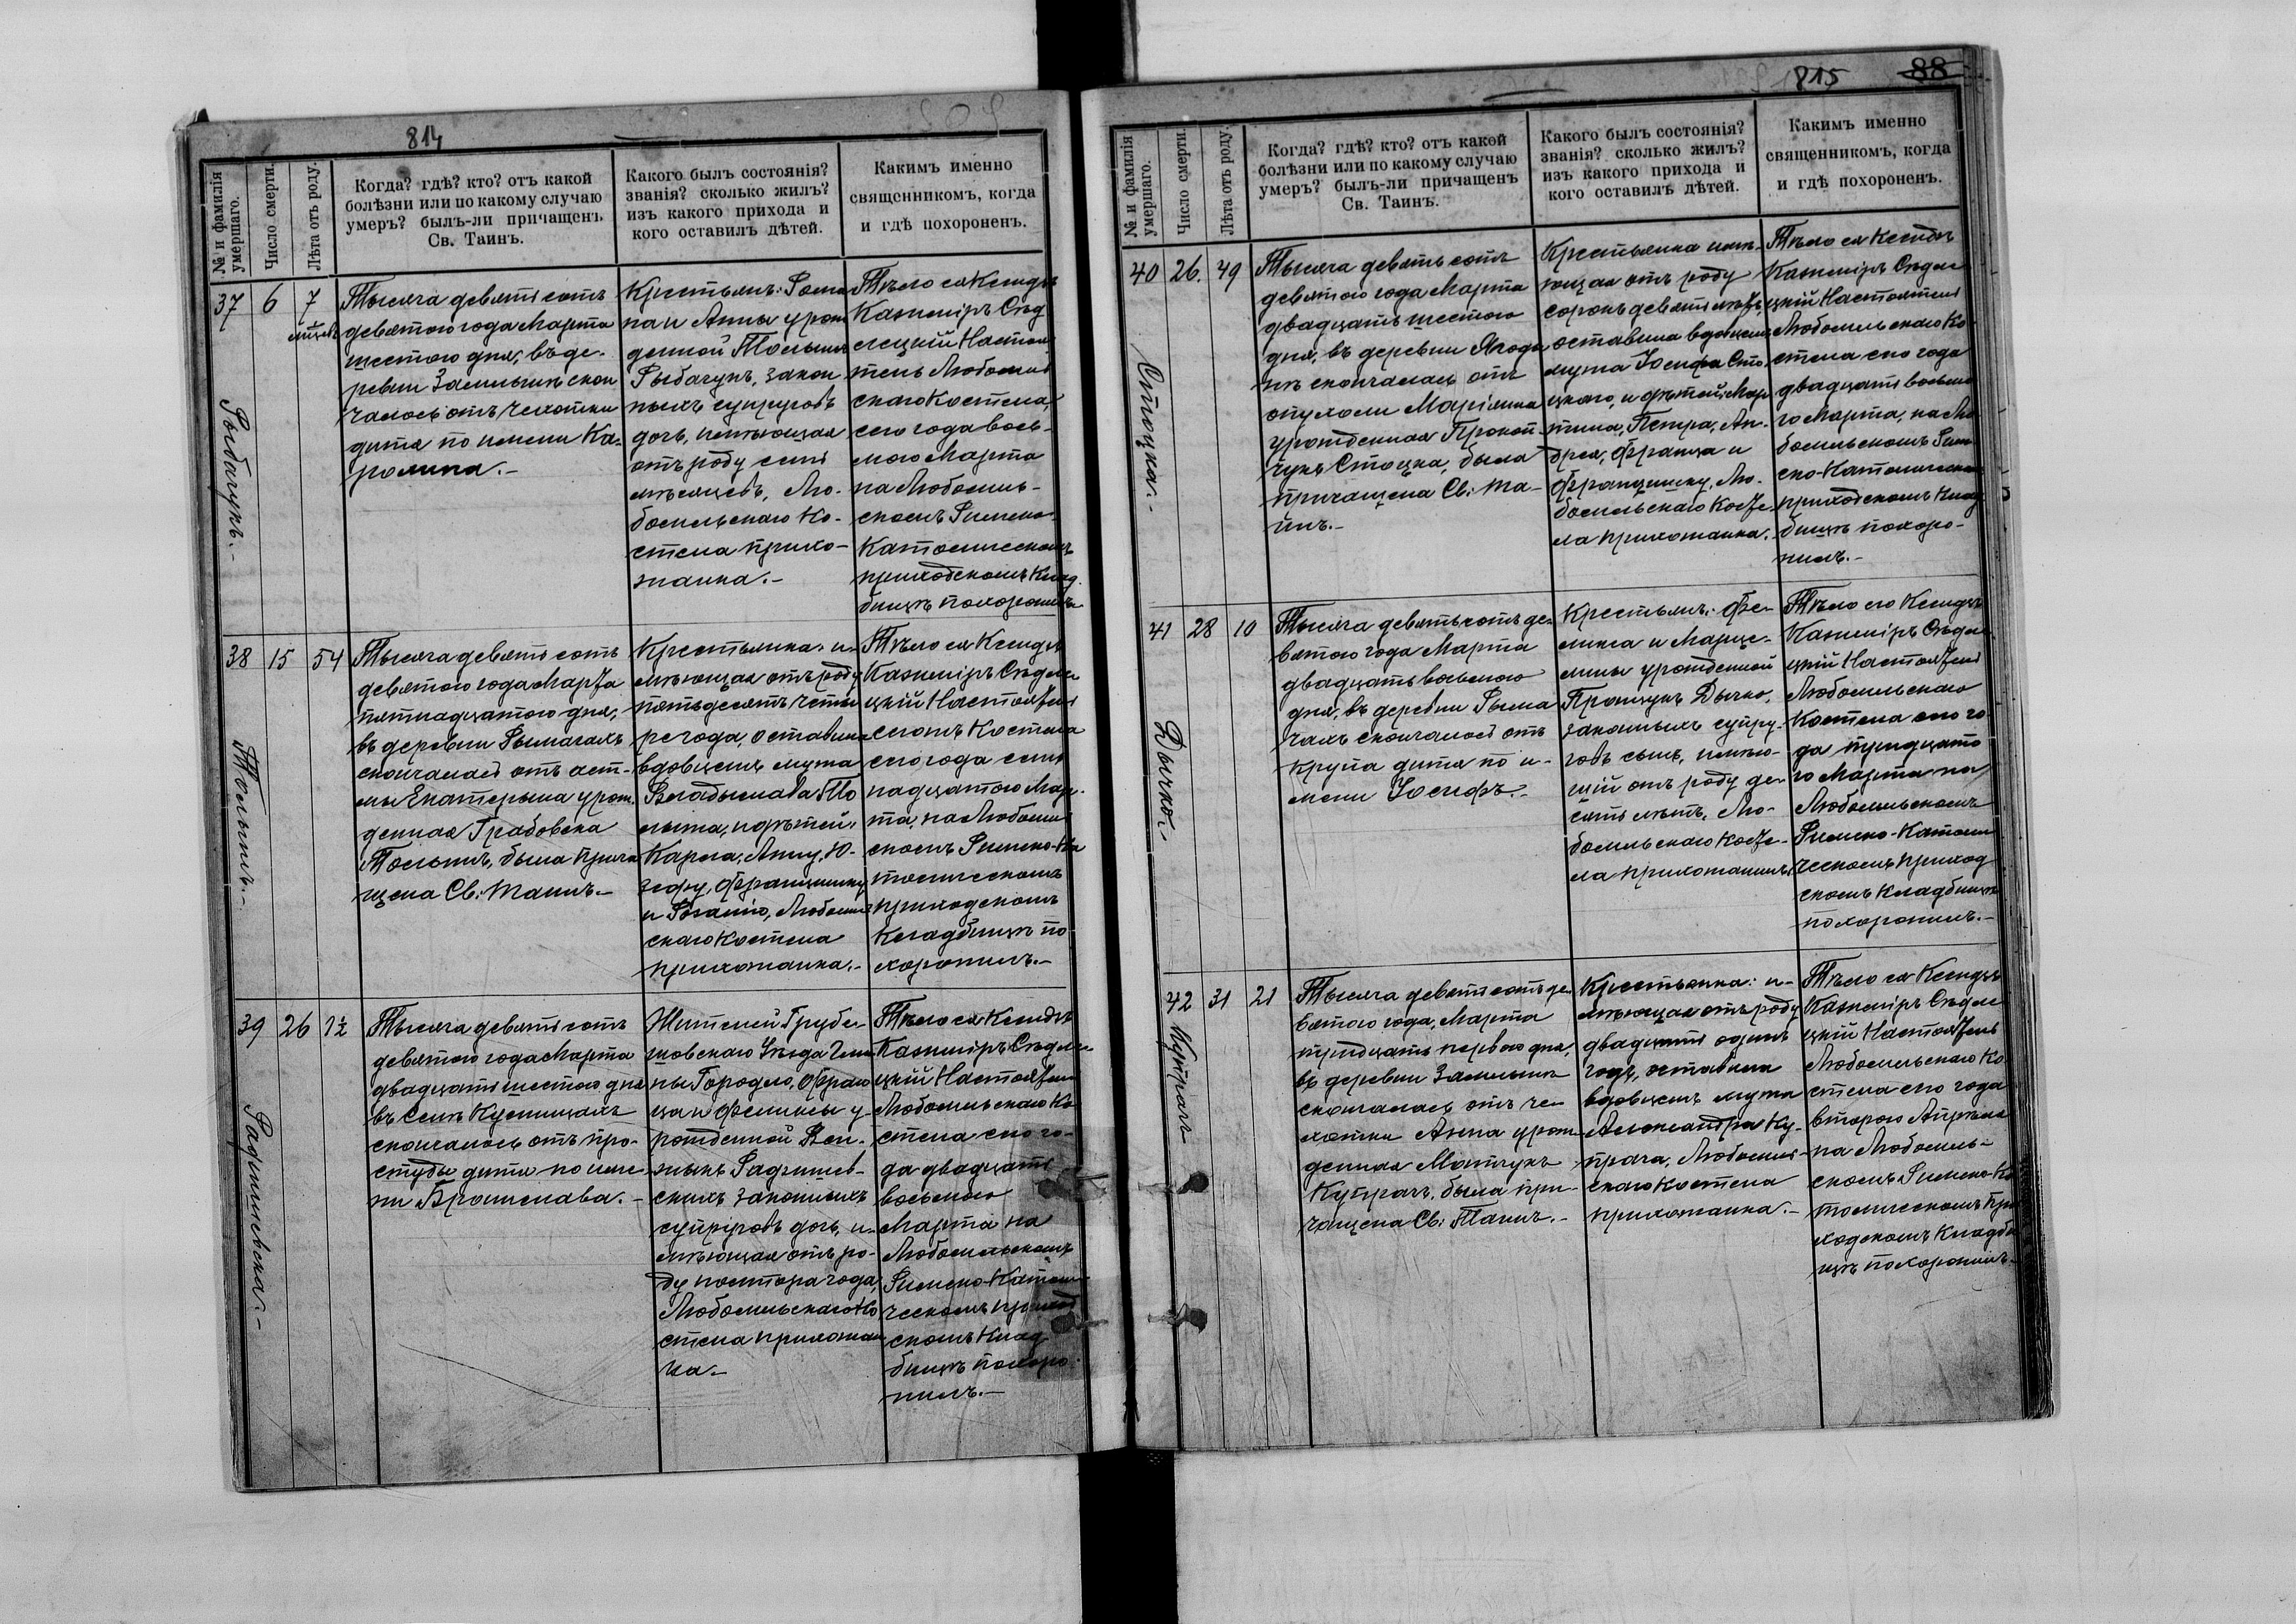 814
№ и фамилія умершаго.
Число смерти.
Лѣта отъ роду.
Когда? гдѣ? кто? отъ какой
болѣзни или по какому случаю
умеръ? былъ-ли причащенъ
Св. Таинъ.
Какого былъ состоянія?
званія? сколько жилъ?
изъ какого прихода и
кого оставилъ дѣтей.
Какимъ именно
священникомъ, когда
и гдѣ похороненъ.
37
Рыбачукъ.-
6
7
Тысяча девятьсотъ
девятого года Марта
шестого дня, въ де-
ревни Замлынѣ скон
чалось отъ чехотки
дитя по имени Ка-
ролина.-
Крестьянъ: Рома
на и Анны урож
денной Толышъ
Рыбачукъ, закон
ныхъ супруговъ
дочь, имѣющая
отъ роду семь
мѣсяцевъ, Лю-
бомльскаго Ко-
стела прихо-
жанка.-
Тѣло ея Ксендзъ
Казиміръ Сѣд
лецкій Настоя
тель Любомль
скаго Костела,
сего года вось-
мого Марта
на Любомль-
скомъ Римско-
Католическомъ
приходскомъ Клад-
бищѣ похоронилъ
38
Толышъ.-
15
54
Тысяча девятьсотъ
девятого года Марта
пятнадцатого дня,
въ деревни Рымачахъ
скончалась отъ аст-
мы Екатерына урож
денная Грабовска
Толышъ, была прича
щена Св. Таинъ.-
Крестьянка: и-
мѣющая отъ роду
пятьдесятъ четы
ре года, оставила
вдовцемъ мужа
Владыслава То
лыша, и дѣтей:
Карла, Анну, Ю-
зефу, Францишку
и Розалію, Любомль
скаго Костела
прихожанка.-
Тѣло ея Ксендзъ
Казиміръ Сѣдле
цкій Настоятель
сего года семь
надцатого Мар-
та, на Любомль
скомъ Римско-Ка
толическомъ
приходскомъ
Кладбищѣ по-
хоронилъ.-
39
Радчишевска.-
26
1½
Тысяча девятьсотъ
девятого года Марта
двадцать шестого дня
въ селѣ Кусницахъ
скончалось отъ про-
студы дитя по име
ни Бронислава.-
Жителей Грубе-
шовскаго Уѣзда Гми
ны Городло, Фран
ца и Феликсы у-
рожденной
скихъ законныхъ
супруговъ дочь, и-
мѣющая отъ ро-
ду полтора года,
Любомльскаго Ко
стела прихожан
ка.-
Тѣло ея Ксендзъ
Казиміръ Сѣдле
цкій Настоятель
Любомльскаго Ко
стела сего го-
да двадцать
восьмого
Марта на
Любомльскомъ
Римско-Католи
ческомъ приход
скомъ Клад
бищѣ похоро-
нилъ.-
815
88
№ и фамилія умершаго.
Число смерти.
Лѣта отъ роду.
Когда? гдѣ? кто? отъ какой
болѣзни или по какому случаю
умеръ? былъ-ли причащенъ
Св. Таинъ.
Какого былъ состоянія?
званія? сколько жилъ?
изъ какого прихода и
кого оставилъ дѣтей.
Какимъ именно
священникомъ, когда
и гдѣ похороненъ.
40
Стоцка.-
26.
49
Тысяча девятьсотъ
девятого года Марта
двадцать шестого
дня, въ деревни Ягодо
нѣ скончалась отъ
опухоли Маріянна
урожденная Прокоп
чукъ Стоцка, была
причащена Св. Та-
йнъ.-
Крестьянка имѣ-
ющая отъ роду
сорокъ девять лѣтъ,
оставила вдовцемъ
мужа Іосифа Сто
цкаго, и дѣтей: Мар
тина, Петра, Ан-
дрея, Франца и
Францишку, Лю-
бомльскаго Косте-
ла прихожанка.
Тѣло ея Ксендзъ
Казиміръ Сѣдле
цкій Настоятель
Любомльскаго Ко
стела сего года
двадцать восьмо
го Марта, на Лю
бомльскомъ Рим
ско-Католическомъ
приходскомъ Клад
бищѣ похоро-
нилъ.-
41
Дычко.-
28
10
Тысяча девятьсотъ де-
вятого года Марта
двадцать восьмого
дня, въ деревни Рыма
чахъ скончалось отъ
крупа дитя по и-
мени Іосифъ.-
Крестьянъ: Фе-
ликса и Марце-
лины урожденной
Дычко,
законныхъ супру-
говъ сынъ, имѣю-
щій отъ роду де-
сять лѣтъ, Лю-
бомльскаго Косте-
ла прихожанинъ.
Тѣло его Ксендзъ
Казиміръ Сѣдле
цкій Настоятель
Любомльскаго
Костела сего го
да тридцато
го Марта на
Любомльскомъ
Римско-Католи
ческомъ приход
скомъ Кладбищѣ
похоронилъ.-
42
Купрач
31
21
Тысяча девятьсотъ де-
вятого года, Марта
тридцать первого дня,
въ деревни Замлынѣ
скончалась отъ че-
хотки Анна урож
денная Матчукъ
Купрачъ, была при-
чащена Св. Таинъ.-
Крестьянка: и-
мѣющая отъ роду
двадцать одинъ
годъ, оставила
вдовцемъ мужа
Александра Ку-
прача, Любомль-
скаго Костела
прихожанка.-
Тѣло ея Ксендзъ
Казиміръ Сѣдле
цкій Настоятель
Любомльскаго Ко
стела сего года
второго Апрѣля
на Любомль-
скомъ Римско-Ка
толическомъ при
ходскомъ Кладби
щѣ похоронилъ.-